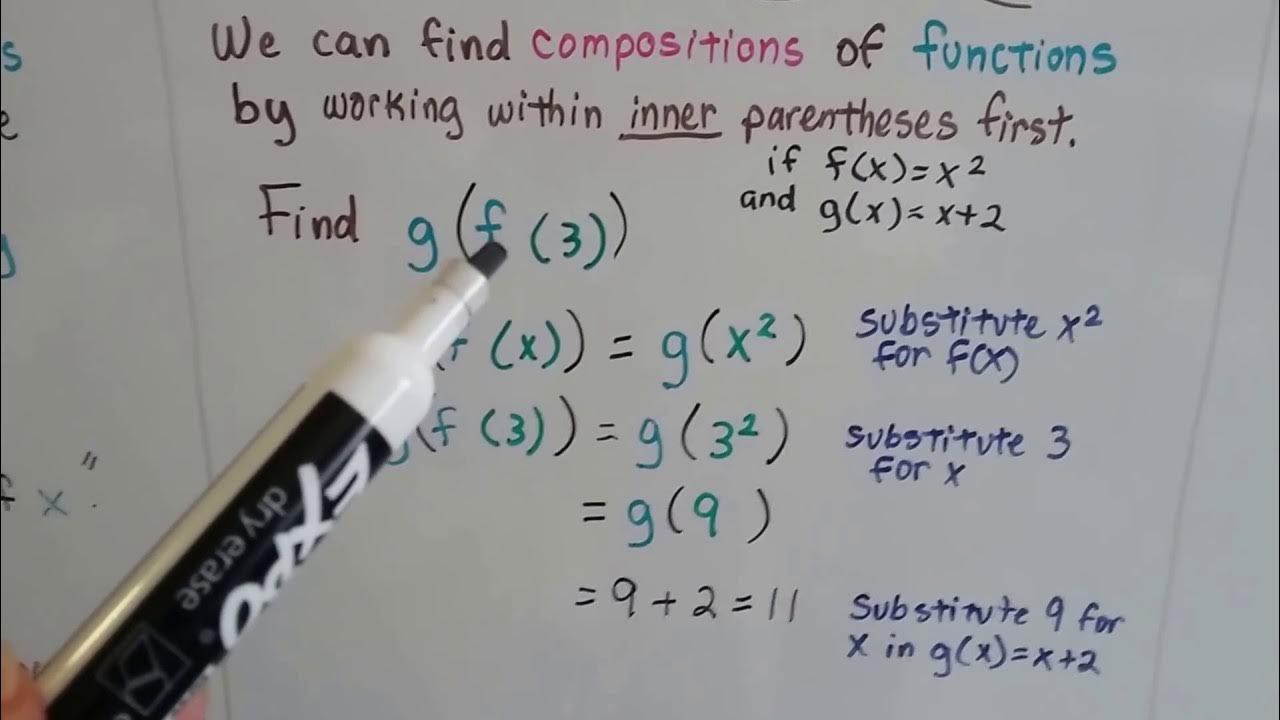 We can find compositions of functions
by working within inner parentheses first.
if f(x)=x²
and g(x)=x+2
Find g(f(3))
(x)) = g(x²)
substitute x²
for f(x)
(f(3)) = g(3²)
substitute 3
for x
= g(9)
= 9+2=11
Substitute 9 for
x in g(x)=x+2
x."
EXPO
dry erase